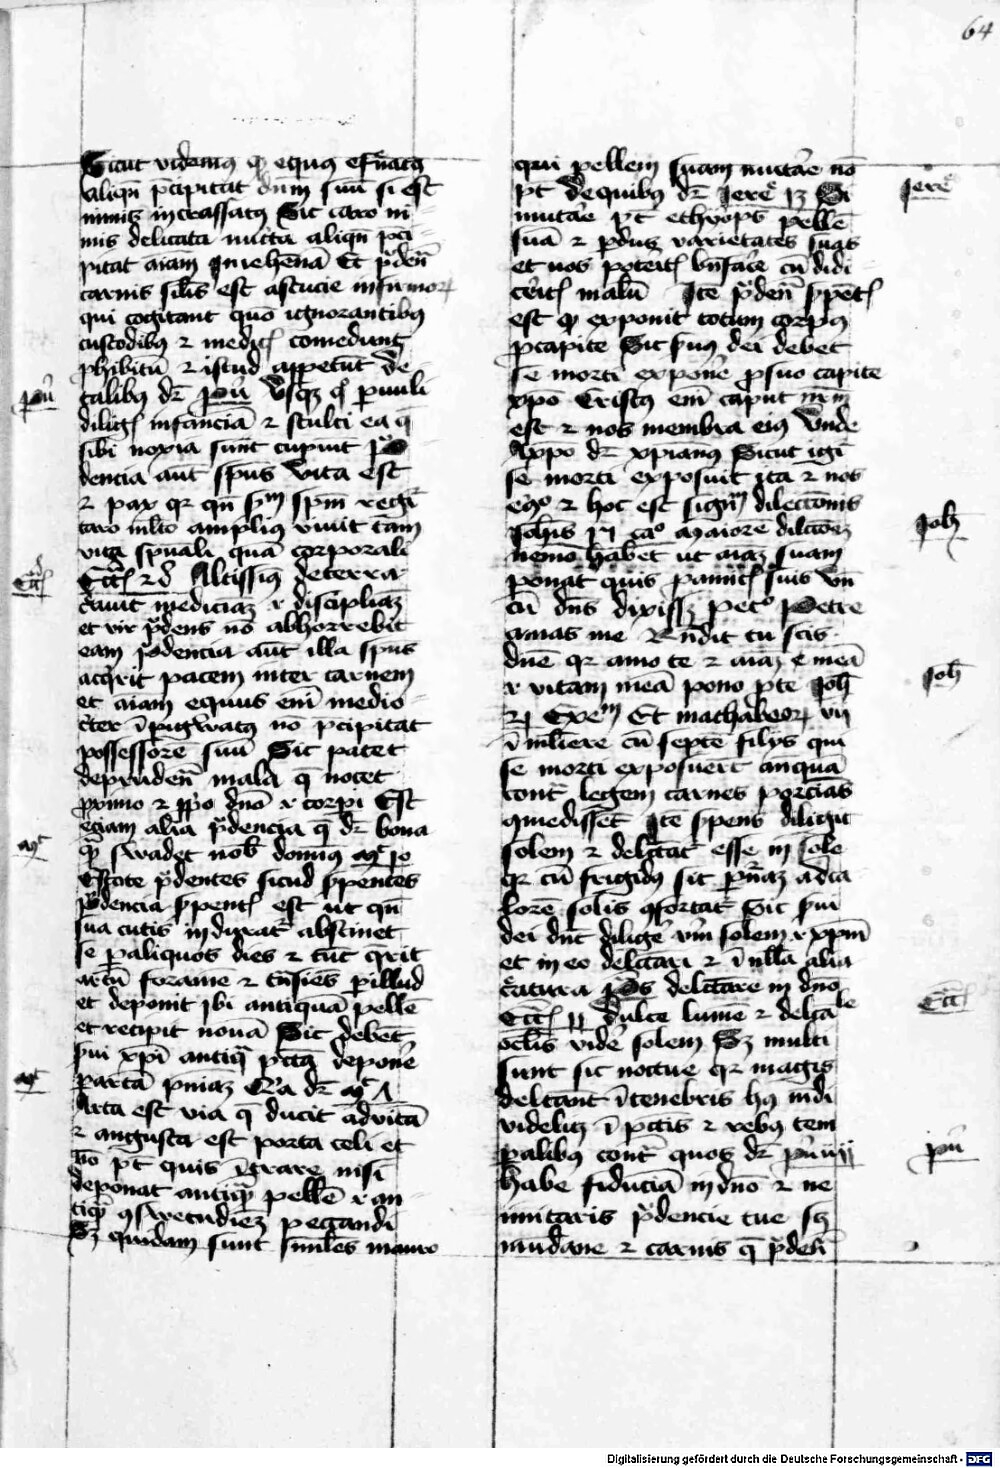 64
Sicut videmus qͥ equus effrenatus
aliqn̄ p̄cipitat dnm̄ suū si est
nimis incrassatꝰ Sic caro ni
mis delicata nutͥta aliqn̄ p̄ci
pitat aīam in iehennā Et p̄den̄
carnis silīs est astucie infirmoꝝ
qui cogitant quō ignorantibꝰ
custodibꝰ ⁊ medicꝭ comedant
ꝓhibitū ⁊ istud appetūt De
talibꝰ dr̄ pūͥ Usqꝫ qͦ pūuli
diligͭꝭ infanciā ⁊ stulti ea q̄
sibi noxia sunt cupiūt Pͮ
dencia aūt spūs vita est
⁊ pax qꝛ qn̄ scdm̄ spm̄ regīͭ
caro mlto amplius viuit tam
vita spūali quā corporali
Ecc̄ꝭ Altissimꝰ de terra
creauit medicinaꝫ ⁊ disciplinaꝫ
et vir p̄dens nō abhorrebit
eam p̄dencia aūt illa spūs
acq̄rit pacem inter carnem
et aīam equus enī medio
cͥter īpigwatꝰ nō p̄cipitat
possessorē suū Sic patet
de prudenͭ mala q̄ nocet
ꝓximo ⁊ ip̄o dnō ⁊ corpi Est
eciam alia p̄dencia q̄ dr̄ bona
qͣ swadet nob̄ domīnꝰ mͭ 10
Estote p̄dentes sicud s̄pentes
P̄dencia s̄pentꝭ est ut qn̄
sua cutis induratr̄ abstinet
se ꝑ aliquos dies ⁊ tūc q̄rit
artū foramē ⁊ tn̄siēs ꝑ illud
et deponit ibi antiquā pellē
et recipit nouā Sic debent
s̄ui xpī antiqͣ pcc̄ta deponē
ꝑ artā pn̄iaꝫ
Arta est via q̄ ducit ad vitā
⁊ angusta est porta celi et
nō pͭ quis īgrare nisi
deponat antiqͣ pellē ⁊ an
tiqͣ ꝯswetudieꝫ peccandi
Sꝫ quidam sunt similes mauro
qui pellem suam mutare nō
pͭ de quibꝰ dr̄ Jereͤ 13 Si
mutare pͭ ethyops pellē
suā ⁊ pardus varietates suas
et uos poteitꝭ bn̄facͤ cū didi
cͤitꝭ malū Itē p̄den̄ s̄pētꝭ
est qͥ exponit totum corpus
ꝓ capite Sic s̄uꝰ dei debet
se morti exponͤe ꝓ suo capite
xpō Cristꝰ enī caput nr̄m
est ⁊ nos membra eiꝰ Unde
dr̄ xpianꝰ Sicut igͥ
se morti exposuit ita ⁊ nos
ergͦ ⁊ hoc est signū dilectionis
Joh̄is 15 caͦ Maiorē dilcc̄oeꝫ
nemo habet ut aīaꝫ suam
ponat quis ꝓ amicꝭ suis Un̄
cū dn̄s dixisꝫ Petͦ Petre
amas me Rn̄dit tu scis
dn̄e qꝛ amo te ⁊ aīaꝫ meā
⁊ vitam meā pono ꝓ te Joh̄
21 Exeͫ Et machabeoꝝ vij
ī muliere cū septē filijs qui
se morti exposuert̄ anquā
contͣ legem carnes porcīas
ꝯmedissēt Itē s̄pens diligit
solem ⁊ delcc̄tatr̄ esse in sole
qꝛ cū frigidꝰ sit ꝑ nr̄aꝫ ad ca
lorē solis ꝯfortatr̄ Sic s̄ui
dei dn̄t diligͤe vm̄ solem ⁊ xpm̄
et in eo delcc̄tari ⁊ ī nulla alia
cͤatura Pͦs delcc̄tare in dnō
Ecc̄ꝭ 11 dulce lumē ⁊ delcͣble
oclīs vidͤe solem Sꝫ multi
sunt sic noctue qꝛ magis
delcc̄tant ī tenebris hꝰ mdi
videlicꝫ ī pcc̄tis ⁊ rebꝰ tem
ꝑalibꝰ contͣ quos dr̄ pūͥ iij
Habe fiduciā in dnō ⁊ ne
imitaris p̄dencie tue sꝫ
mūdane ⁊ carnis q̄ p̄den̄
pūͥ
Ecc̄ꝭ
mͭ
mͭ
Jereͤ
Joh̄
Joh̄
Ecc̄ꝭ
pūͥ
Digitalisierung gefördert durch die Deutsche Forschungsgemeinschaft - DFG